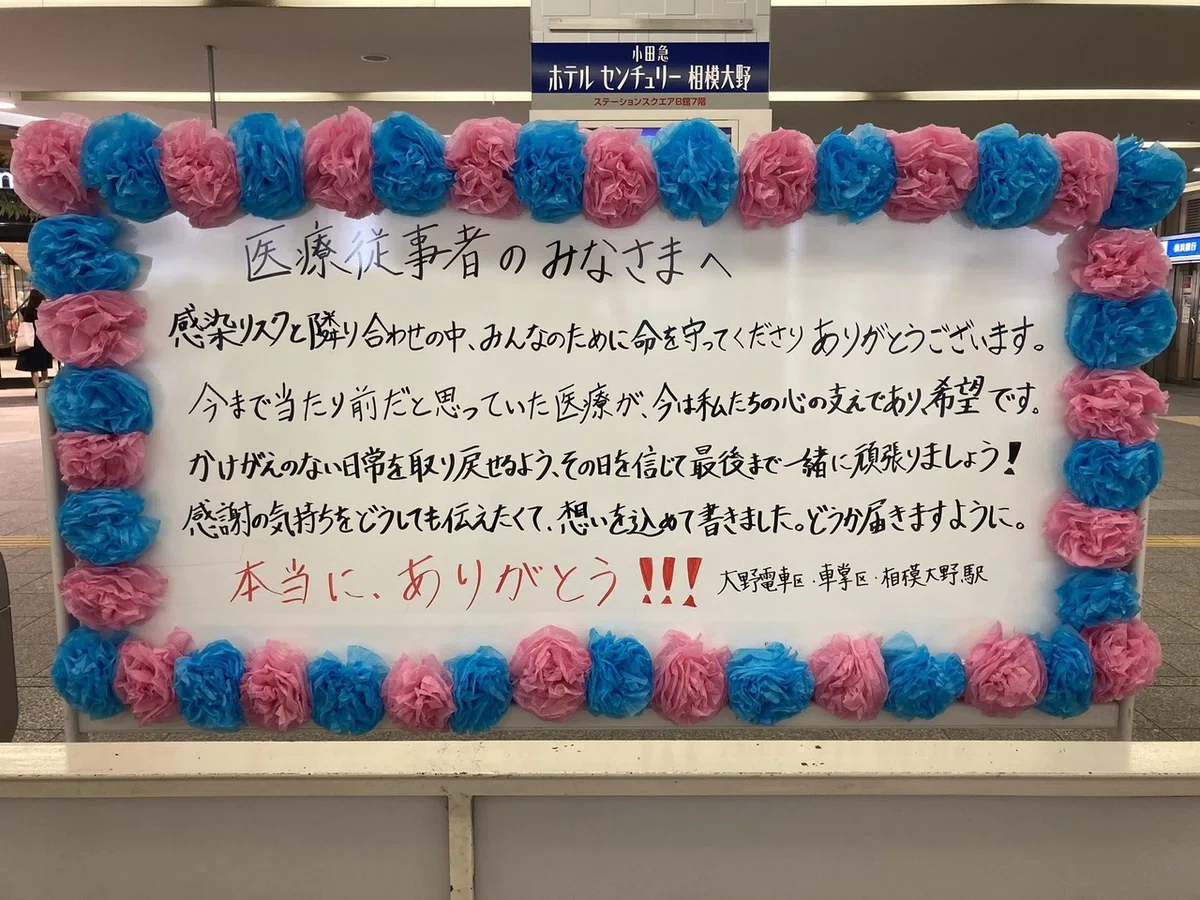 小田急
ホテル センチュリー 相模大野
ステーションスクエアB館7階
医療従事者のみなさまへ
感染リスクと隣り合わせの中、みんなのために命を守ってくださりありがとうございます。
今まで当たり前だと思っていた医療が、今は私たちの心の支えであり、希望です。
かけがえのない日常を取り戻せるよう、その日を信じて最後まで一緒に頑張りましょう!
感謝の気持ちをどうしても伝えたくて、想いを込めて書きました。どうか届きますように。
本当に、ありがとう!!!
大野電車区・車掌区・相模大野駅
横浜銀行